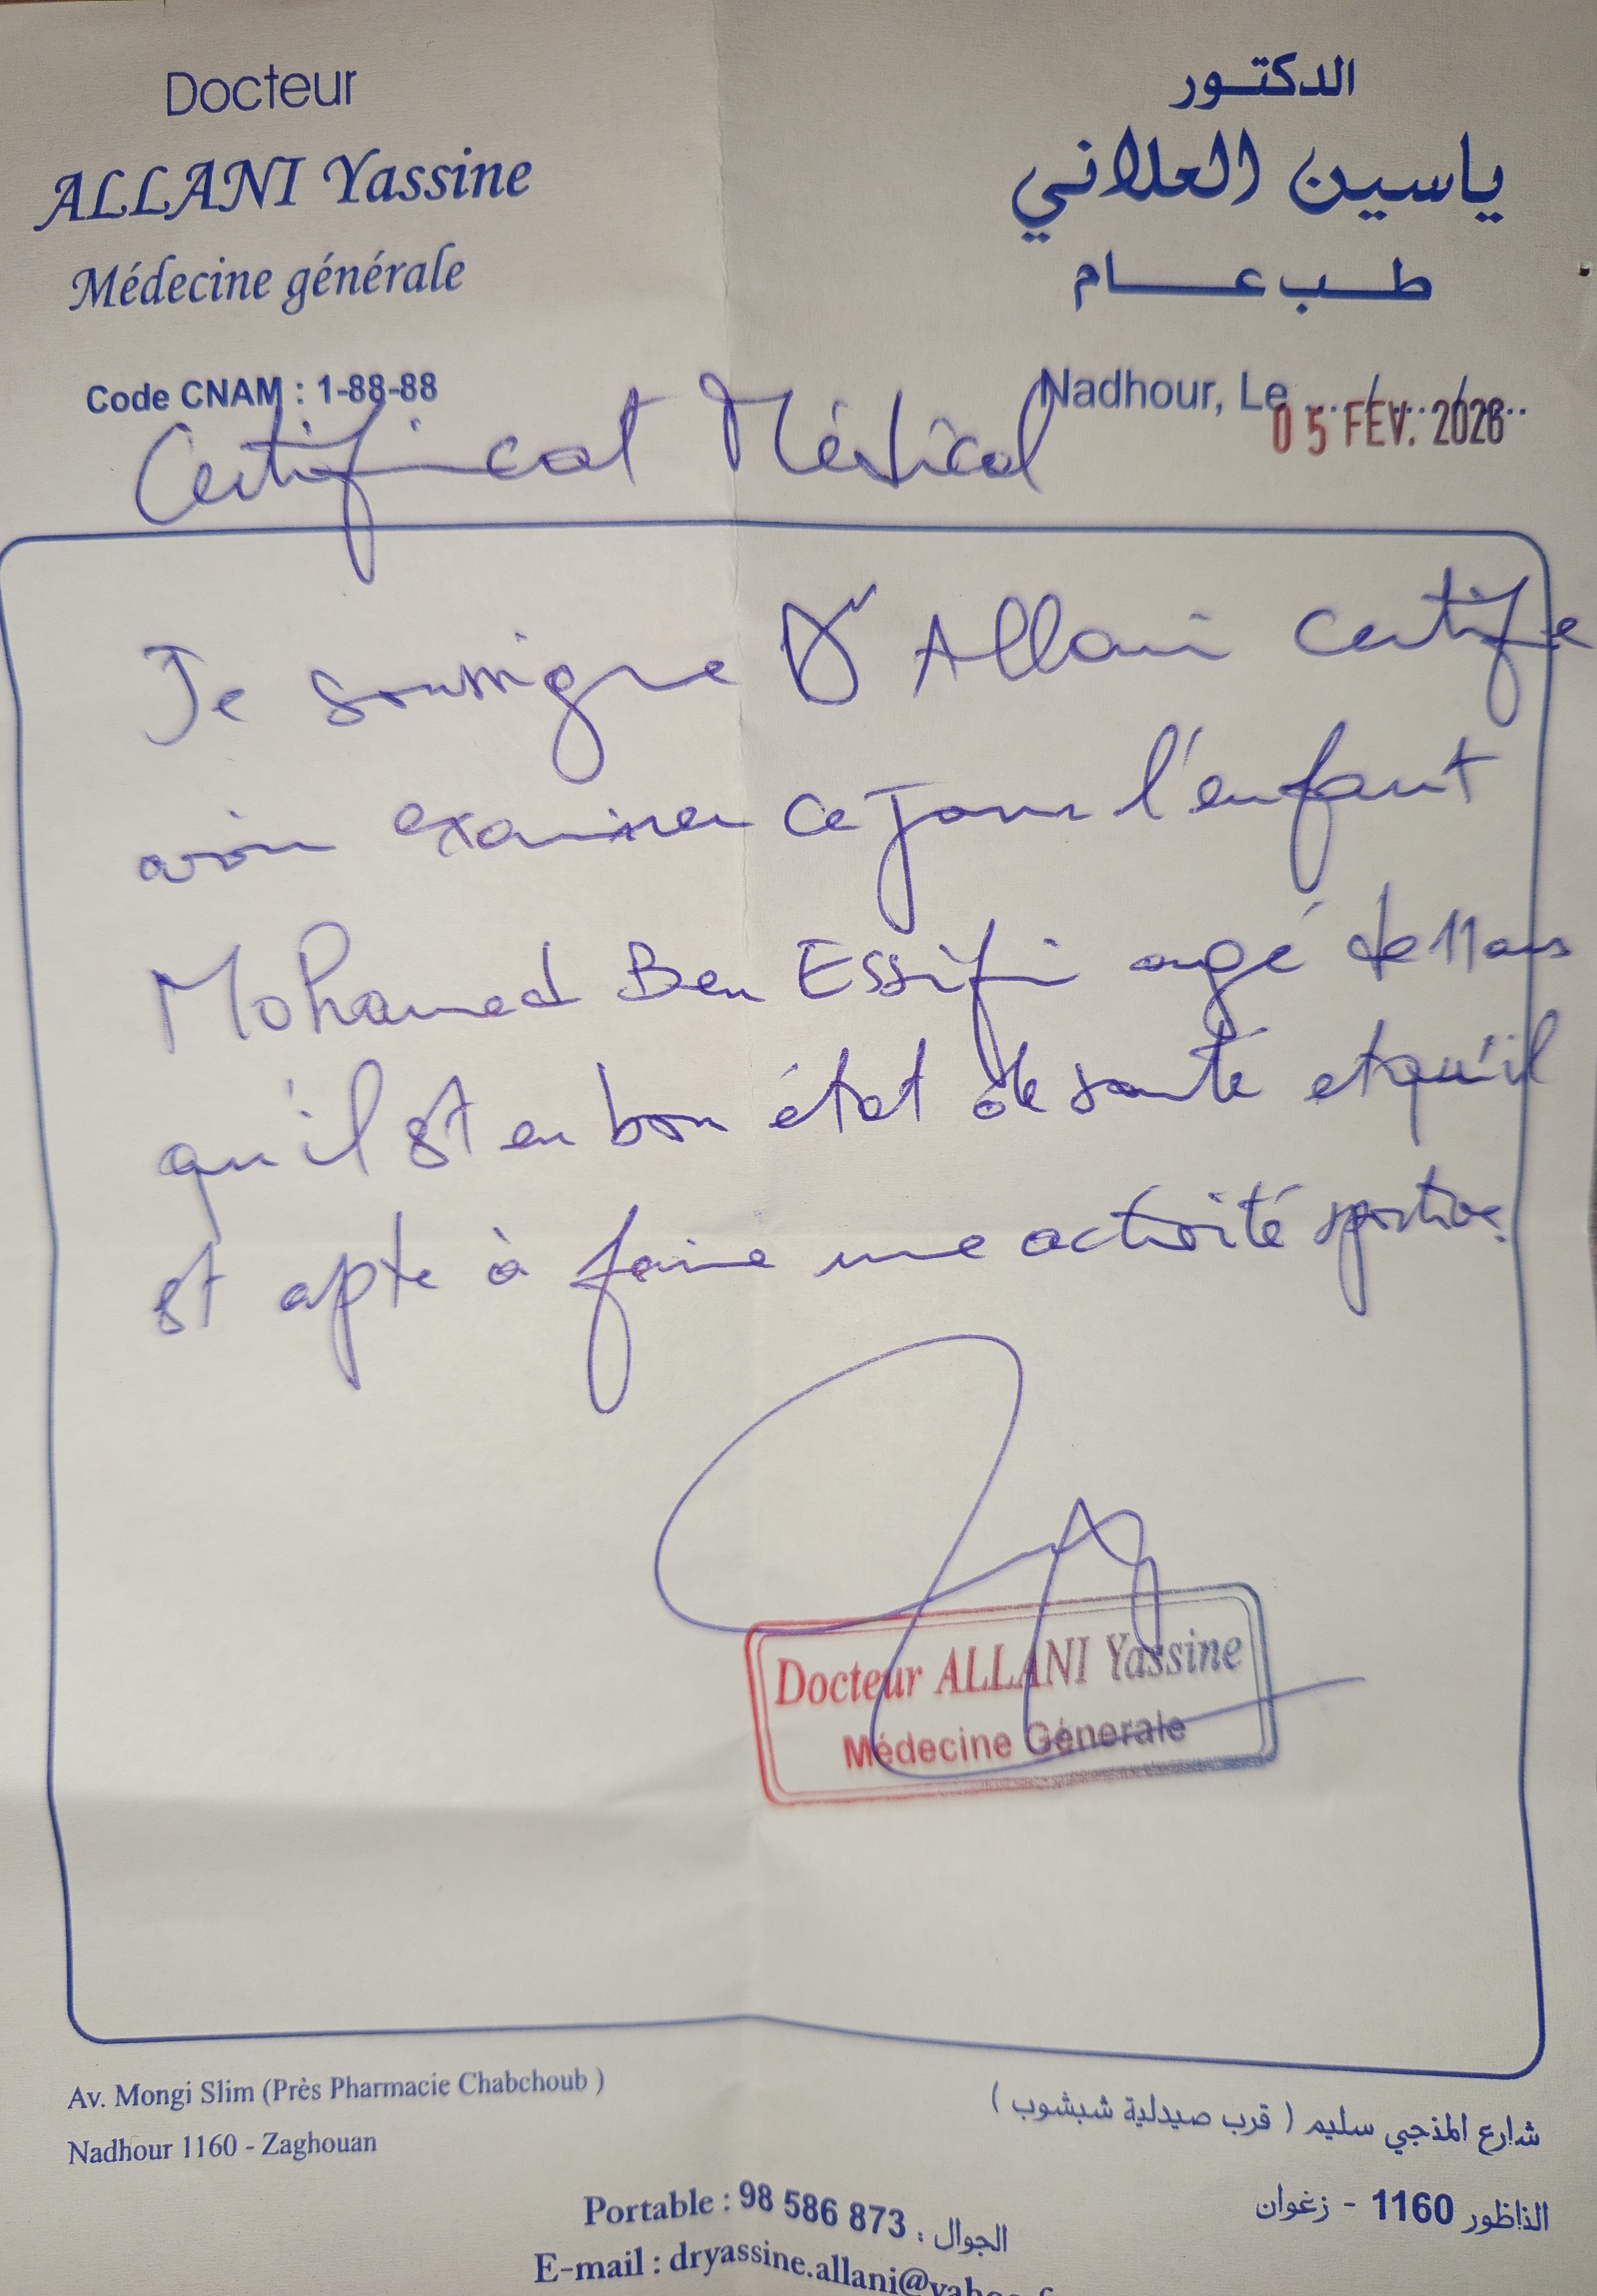 Docteur
ALLANI Yassine
Médecine générale
Code CNAM : 1-88-88
الدكتور
ياسين العلاني
طب عام
Nadhour, Le
05 FEV. 2026
Certificat Médical
Je soussigne Dr Allani certifie
avoir examiner ce jour l'enfant
Mohamed Ben Essifi agé de 11 ans
qu'il est en bon état de santé et qu'il
est apte à faire une activité sportive.
Docteur ALLANI Yassine
Médecine Génerale
Av. Mongi Slim (Près Pharmacie Chabchoub )
Nadhour 1160 - Zaghouan
شارع المنجي سليم ( قرب صيدلية شبشوب )
الناظور 1160 - زغوان
Portable : 98 586 873 : الجوال
E-mail : dryassine.allani@yahoo.f